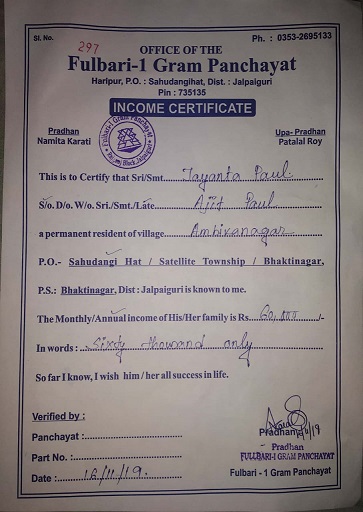 Sl. No. 297
Ph. : 0353-2695133
OFFICE OF THE
Fulbari-1 Gram Panchayat
Haripur, P.O. : Sahudangihat, Dist. : Jalpaiguri
Pin : 735135
INCOME CERTIFICATE
Pradhan
Namita Karati
Fulbari-1 Gram Panchayat
Upa- Pradhan
Patalal Roy
This is to Certify that Sri/Smt. Jayanta Paul
S/o. D/o. W/o. Sri./Smt./Late. Ajit Paul
a permanent resident of village. Ambikanagar
P.O.- Sahudangi Hat / Satellite Township / Bhaktinagar,
P.S.: Bhaktinagar, Dist : Jalpaiguri is known to me.
The Monthly/Annual income of His/Her family is Rs. 60,000 /-
In words : Sixty thousand only
So far I know, I wish him / her all success in life.
Verified by :
Panchayat :
Part No. :
Date : 16/11/19.
Pradhan
Pradhan
FULBARI-I GRAM PANCHAYAT
Fulbari - 1 Gram Panchayat